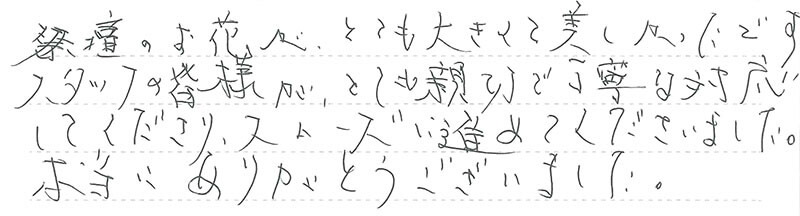 祭壇のお花が、とても大きくて美しかったです
スタッフの皆様が、とても親切で丁寧な対応
してくださり、スムーズに進めてくださいました。
本当にありがとうございました。